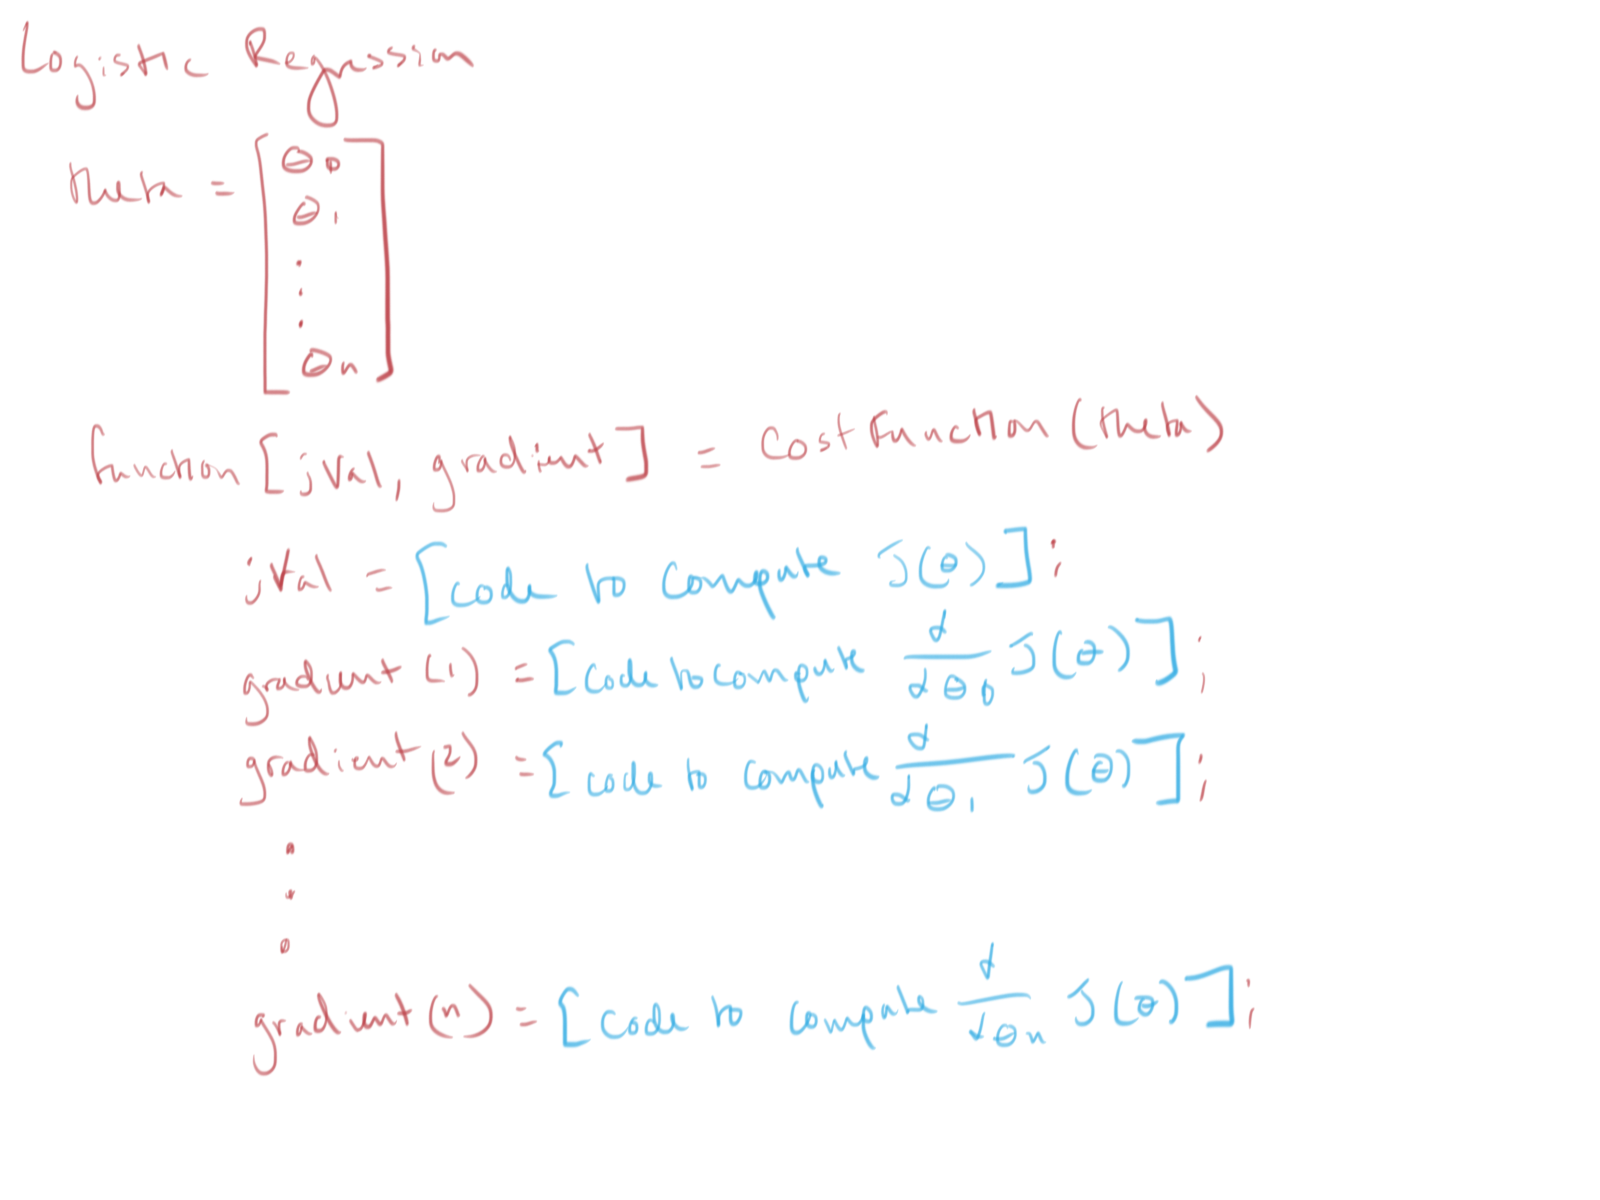 Logistic Regression
theta = [θ0
θ1
.
.
.
θn]
function [jVal, gradient] = CostFunction (theta)
jVal = [code to compute J(θ)];
gradient (1) = [code to compute d/dθ0 J(θ)];
gradient (2) = [code to compute d/dθ1 J(θ)];
.
.
.
gradient (n) = [code to compute d/dθn J(θ)];